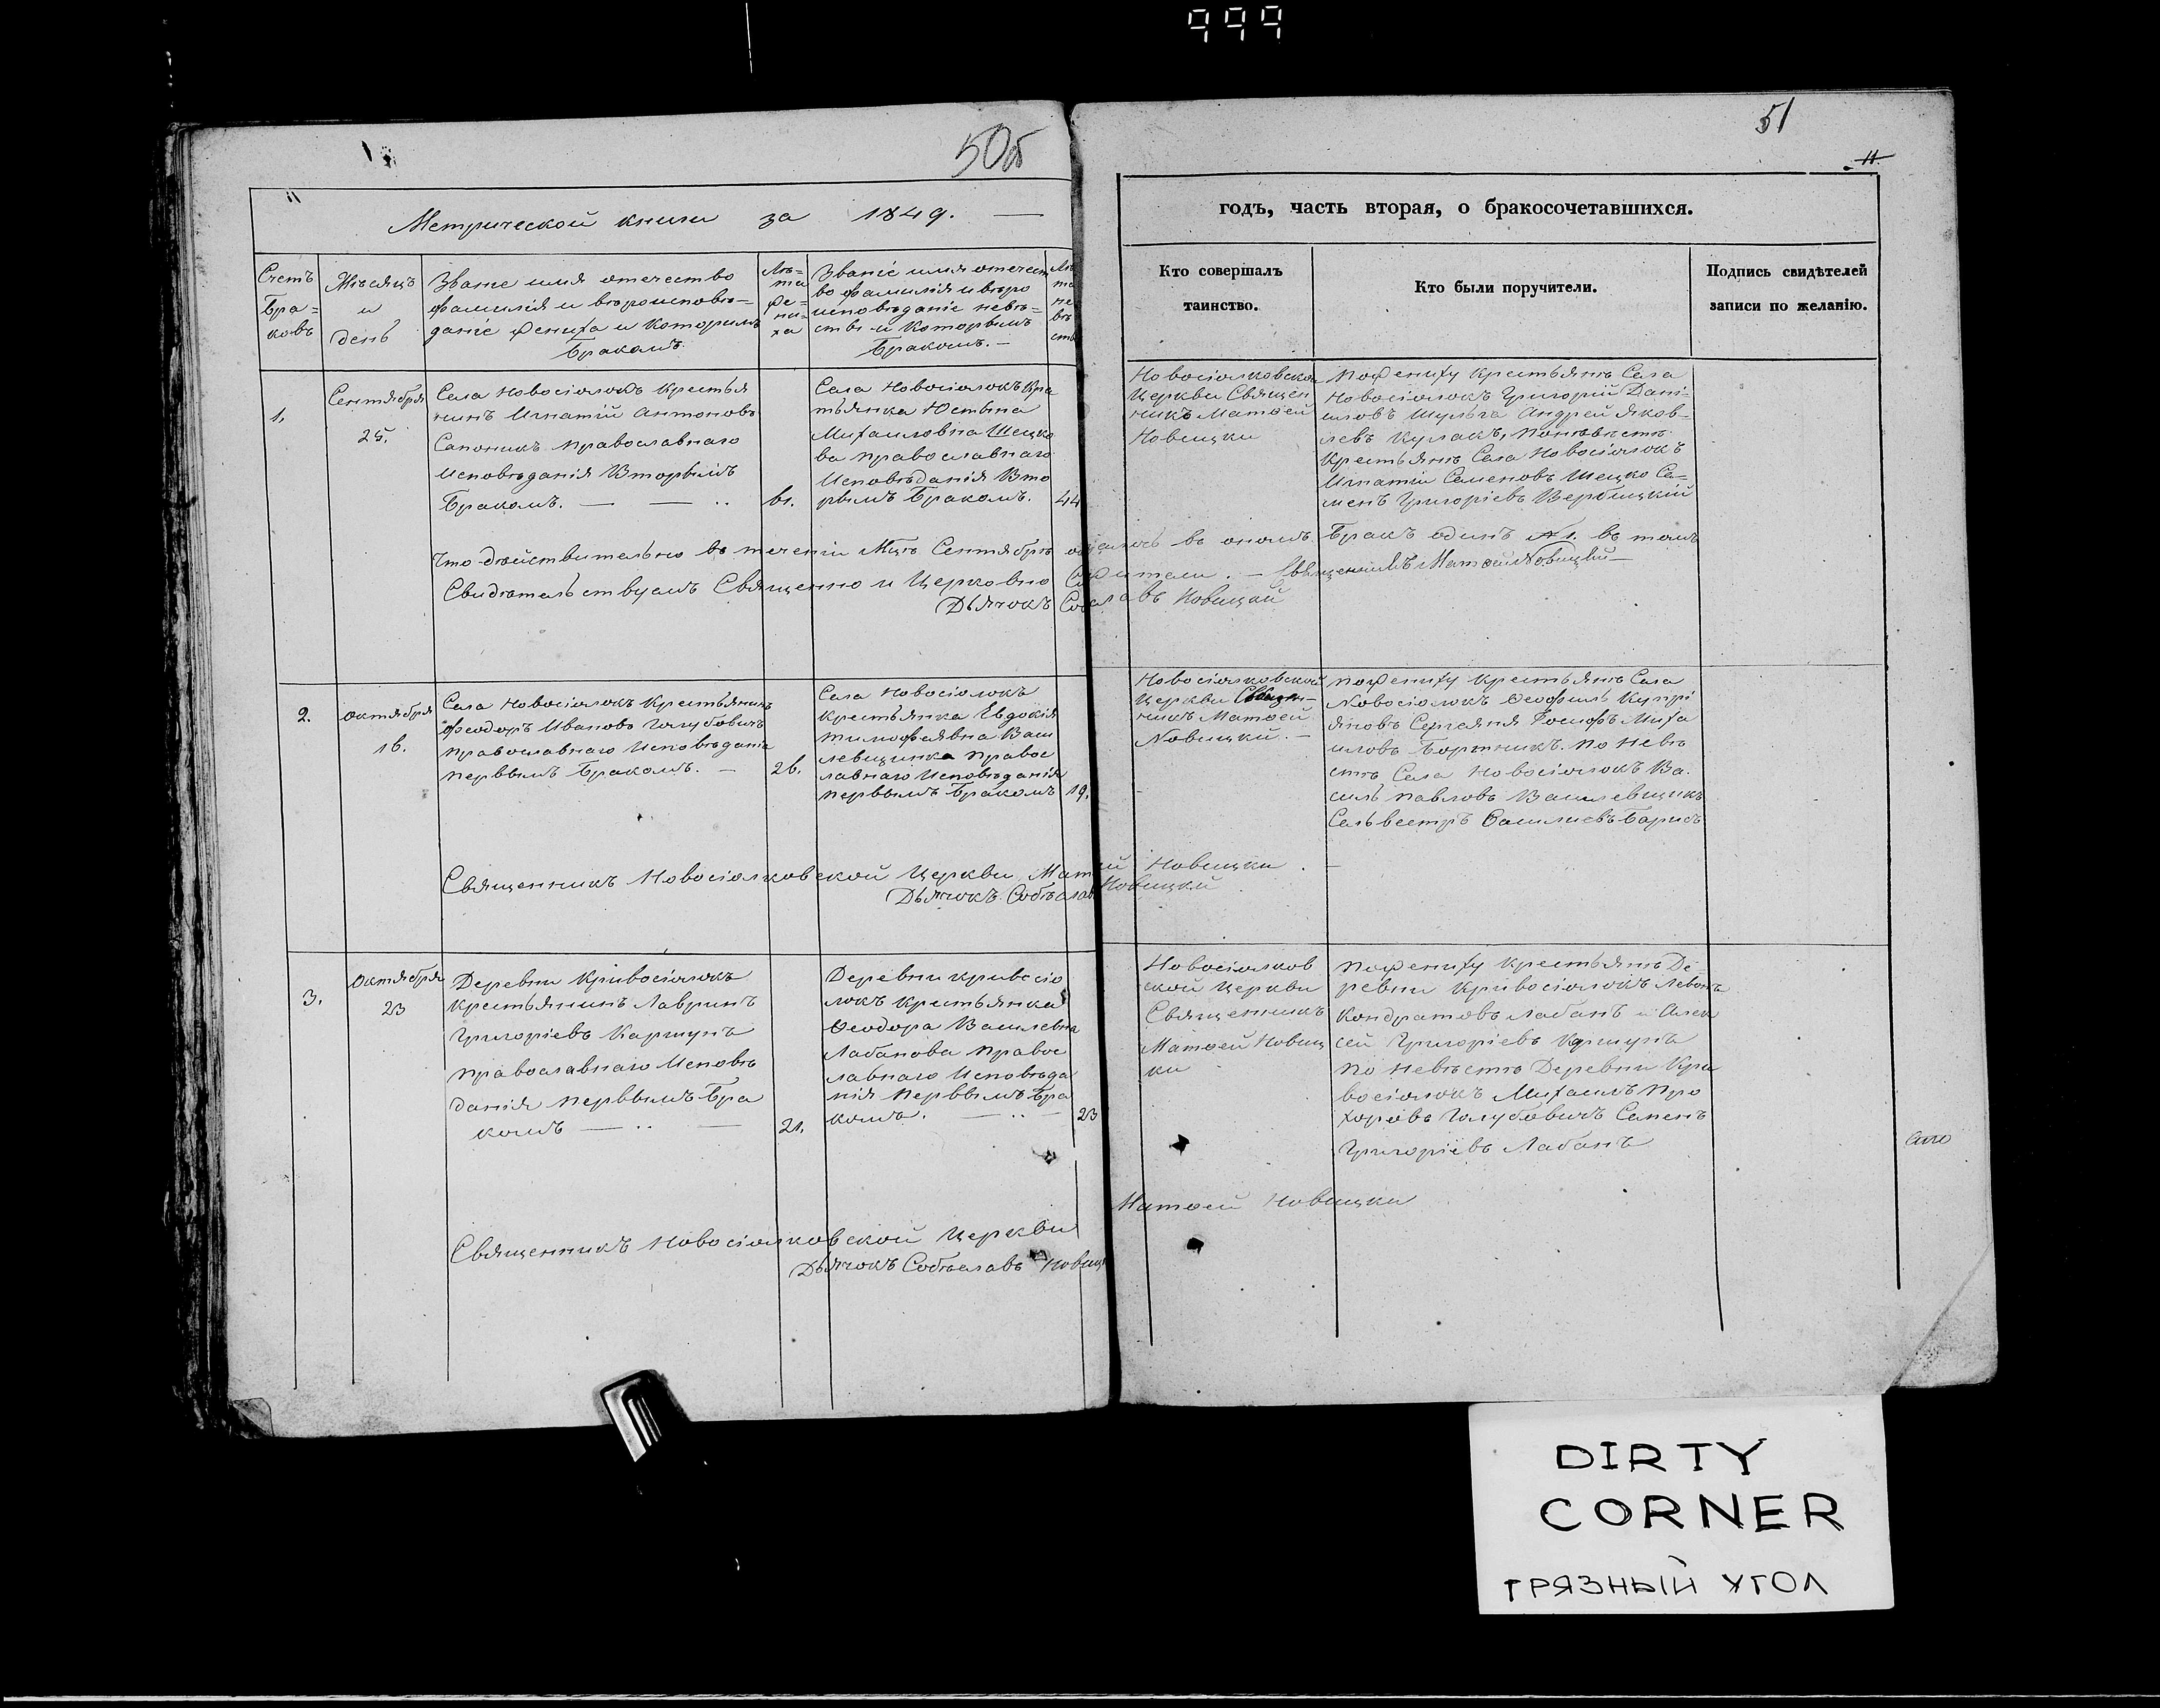 999
50об
51
11.
Метрической книги за 1849. —
годъ, часть вторая, о бракосочетавшихся.
Счетъ
бра=
ковъ
Мѣсяцъ
и
день
Званіе имя отечество
фамилія и вѣроисповѣ=
даніе жениха и которымъ
бракомъ.
Лѣ=
та
же=
ни=
ха
Званіе имя отечест
во фамилія и вѣро
исповѣданіе невѣ=
сты и которымъ
бракомъ. —
Лѣ
та
не
вѣ
сты
Кто совершалъ
таинство.
Кто были поручители.
Подпись свидѣтелей
записи по желанію.
1.
Сентября
25.
Села Новосіолокъ крестья
нинъ Игнатій Антоновъ
Сапоникъ православнаго
исповѣданія вторымъ
бракомъ. — — ..
61.
Села Новосіолокъ кре
тьянка Юстына
Михаиловна Шецко
ва православнаго
исповѣданія вто
рымъ бракомъ.
44
Новосіолковской
Церкви Священ
никъ Матѳей
Новицки
По жениху крестьянѣ Села
Новосіолокъ Григорій Дані=
иловъ Шульга Андрей Яков=
левъ Кулакъ, по невѣстѣ
крестьянѣ Села Новосіолокъ
Игнатіи Семеновъ Шецко Се=
менъ Григоріевъ Вербицкій
Что действительно въ теченіи Мца Сентября въ ономъ бракъ одинъ №1. въ томъ
Свидѣтельствуемъ Священно и Церковно Служители. — Священникъ Матѳей Новицкій —
Дьячокъ Новицкій
2.
Октября
16.
Села Новосіолокъ крестьянинъ
Феодоръ Ивановъ Голубовичъ
православнаго исповѣданія
первымъ бракомъ. —
26.
Села Новосіолокъ
крестьянка Евдокія
Тимофеявна Васи
левщинка правос
лавнаго исповѣданія
первымъ бракомъ
19.
Новосіолковской
Церкви Священ—
никъ Матѳей
Новицки. —
По жениху крестьянѣ Села
Новосіолокъ Ѳеофилъ Купрі
яновъ Іосифъ Миха
иловъ Бортникъ. По невѣ
стѣ Села Новосіолокъ Ва.
силь Павловъ Василевщикъ
Сельвестръ
Священникъ Новосіолковской Церкви Матѳей Новицки. —
Дьячокъ Собѣславъ Новицкій
3.
Октября
23
Деревни Кривосіолокъ
крестьянинъ Лавринъ
Григоріевъ Каршунъ
православнаго исповѣ
данія первымъ бра
комъ — .. —
21.
Деревни Кривосіо
локъ крестьянка
Ѳеодора Василевна
Лабанова правос
лавнаго исповѣда
нія первымъ бра
комъ. — .. —
23
Новосіолков
ской Церкви
Священникъ
Матѳей Новиц
ки
По жениху крестьянѣ Де
ревни Кривосіолокъ Левонъ
Кондратовъ Лабанъ и Алек
сей Григоріевъ Каршунъ
По невѣстѣ Деревни Кри
восіолокъ Михаилъ Про
хоровъ Голубовичъ Семенъ
Григоріевъ Лабанъ
Священникъ Новосіолковской Церкви Матѳей Новицки
Дьячокъ Собѣславъ Новицк
DIRTY
CORNER
ГРЯЗНЫЙ УГОЛ